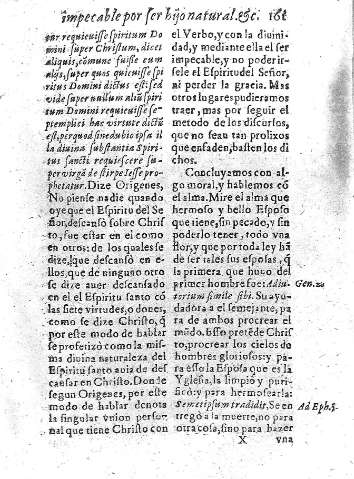 impecable por ser hijo natural. &c. 161
tur requieuisse spiritum Do
mini super Christum, dicet
aliquis, cõmune fuisse cum
alijs, super quos quieuisse spi
ritus Domini dictus est: sed
vide super nullum aliũ spiri
tum Domini requieuisse se-
ptemplici hac virtute dictũ
est, per quod sine dubio ipsa il
la diuina substantia Spiri-
tus sancti requiescere su-
per virga de stirpe Iesse pro-
phetatur. Dize Origenes,
No piense nadie quando
oye que el Espiritu del Se
ñor, descansó sobre Chris
to, fue estar en el como
en otros: de los quales se
dize, que descansó en e-
llos, que de ninguno otro
se dize auer descansado
en el el Espiritu santo cõ
las siete virtudes, o dones,
como se dize Christo, q̃
por este modo de hablar
se profetizó como la mis-
ma diuina naturaleza del
Espiritu santo auia de des
cansar en Christo. Donde
segun Origenes, por este
modo de hablar denota
la singular vnion perso-
nal que tiene Christo con
el Verbo, y con la diuini-
dad, y mediante ella el ser
impecable, y no poderir-
sele el Espiritu del Señor,
ni perder la gracia. Mas
otros lugares pudieramos
traer, mas por seguir el
metodo de los discursos,
que no sean tan prolixos
que enfaden, basten los di
chos.
Concluyamos con al-
go moral, y hablemos cõ
el alma. Mire el alma que
hermoso y bello Esposo
que tiene, sin pecade, y sin
poderlo tener, todo vna
flor, y que por toda ley hã
de ser tales sus esposas, q̃
la primera que huuo del
primer hombre foe: Adiu-
torium simile sibi. Su ayu-
dadora a el semejante, pa
ra de ambos procrear el
mũdo. Esso pretẽde Chris
to, procrear los cielos de
hombres gloriosos; y pa-
ra esso la Esposa que es la
Yglesia, la limpió y puri-
ficó: y para hermosearla:
Semetipsum tradidit, Se en
tregó a la muerte, no para
otra cosa, sino para hazer
X vna
Gen. 20
Ad Eph. 5.